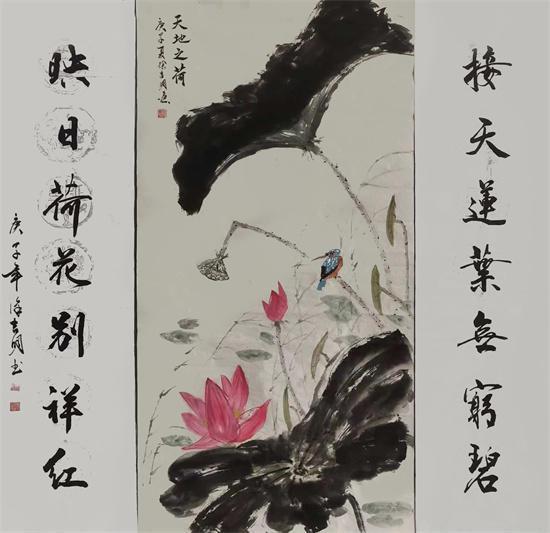 接天蓮葉無窮碧
天地之荷
庚子夏徐吉明
映日荷花别祥红
庚子年徐吉明书